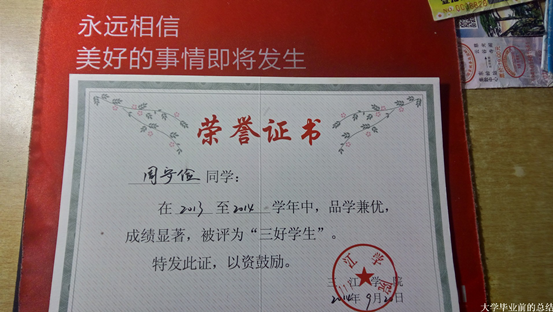 永远相信
美好的事情即将发生
荣誉证书
周宇俊 同学：
在 2013 至 2014 学年中，品学兼优，
成绩显著，被评为“三好学生”。
特发此证，以资鼓励。
三江学院
2014年9月20日
大学毕业前的总结